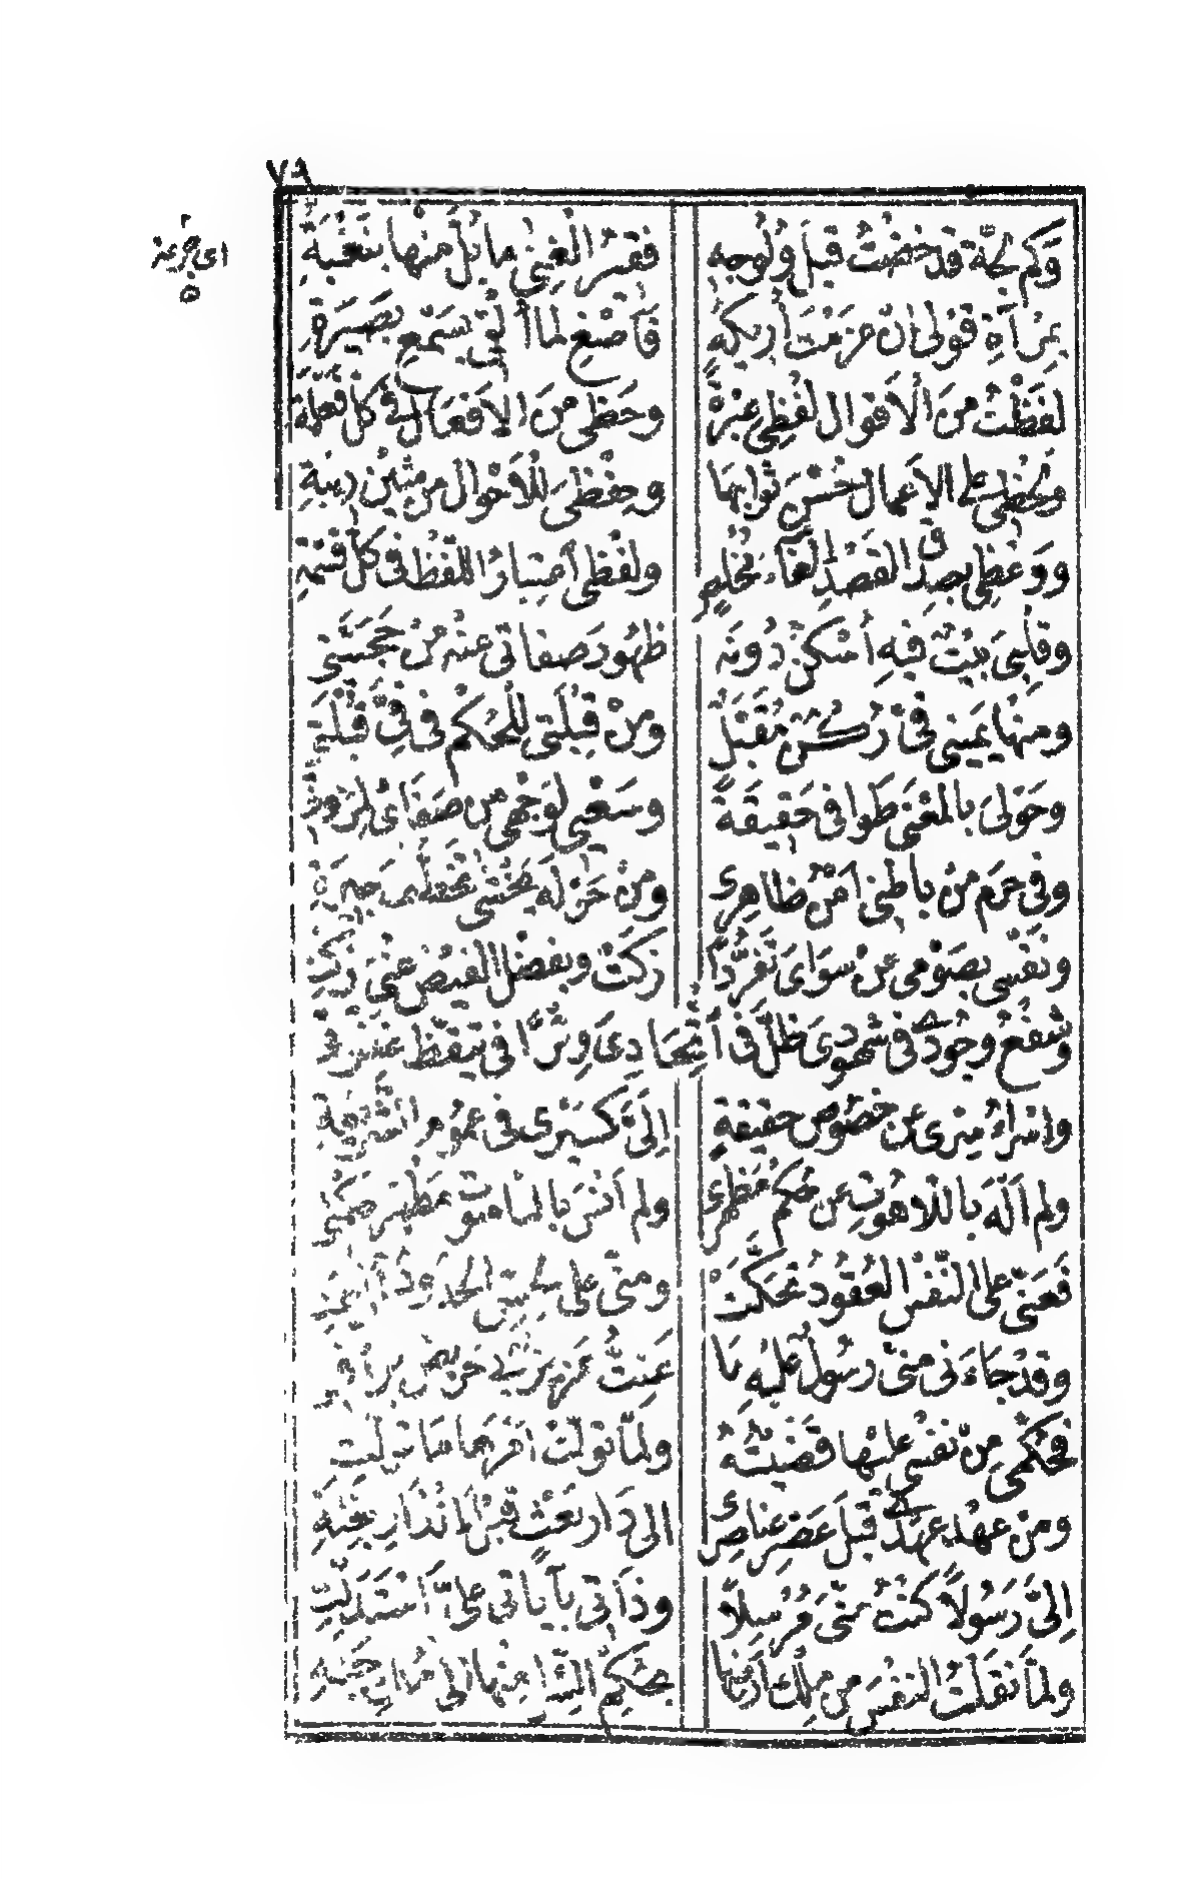 ٧٩
اى جرعة
وَكَم لجّة قد خضتُ قبلَ وُلُوجه فقيرُ الغِنى ما بُلَّ منها بنَغبَةِ
بمِرْآةِ قولى انْ عزمتَ أُريكهُ فَأَصْغِ لما أُلقى بسَمْعِ بصيرَةِ
لفَظْتُ منَ الأقوال لفْظِى عِبْرةً وحظى منَ الافعال فى كل فعلة
ولحظى على الاعمال حُسْنَ ثوابها وحِفْظى للأحوال من شين ريبة
ووَعْظى بصدق القصْدِ القاءَ مُخْلِصٍ ولفظى اعتبارُ اللفظ فى كل قسمةِ
وقلبى بيْتٌ فيه أسْكنُ دُونَه ظهُور صفاتى عنه منْ حجبيّتى
ومنها يَمينى فىّ رُكنٌ مُقَبَّلٌ ومنْ قبلتى للحُكم فى فىّ قُبْلَتى
وحَوْلىَ بالمعنى طَوافى حَقيقَةً وسَعْيى لوَجْهى من صَفَاءى لمَرْوَتى
وفى حرَم منْ باطنى أمْنُ ظاهرى ومنْ حَوْلَه يُخْشى تخَطُّف جيرَتى
ونَفْسى بصَوْمى عنْ سوَاىَ تَفَرُّدًا زكَتْ وبفضل الفيض عنّى زكت
وشَفْعُ وجُودى فى شهودى ظلّ فى اتّحَادى وِتْرًا فى تيقّظ غفوتى
واسْراءُ سِرّى عن خصُوص حقيقةٍ إلىَّ كسَيْرى فى عمُوم الشريعة
ولم ألْهَ باللّاهُوتِ عن حُكم مظهرى ولم أنسَ بالناسوت مظهر حكمتى
فَعَنّى على النّفْس العُقُودُ تحكّمَتْ ومنّى على الحسّ الحدُود أُقيمت
وقدْ جاءَنى منّى رسُولٌ عليْهِ مَا عَنِتُّ عزيز بى حريص لرأفة
فحُكْمىَ منْ نفسى عليْها قضَيْتُهُ ولمّا تولّتْ أمْرَهَا مَا تولّت
ومنْ عهْد عهْدى قبلَ عصْر عناصِرى الى دَار بَعْثٍ قبْل انْذَار بعْثَةِ
إلىّ رَسُولاً كنتُ منّى مُرْسَلاً وذَاتى بآياتى علىّ اسْتَدَلّتِ
ولمّا نقَلْتُ النفْسَ من مِلْك أرْضها بحُكمِ الشّرا منْها الى مُلك جنّةِ